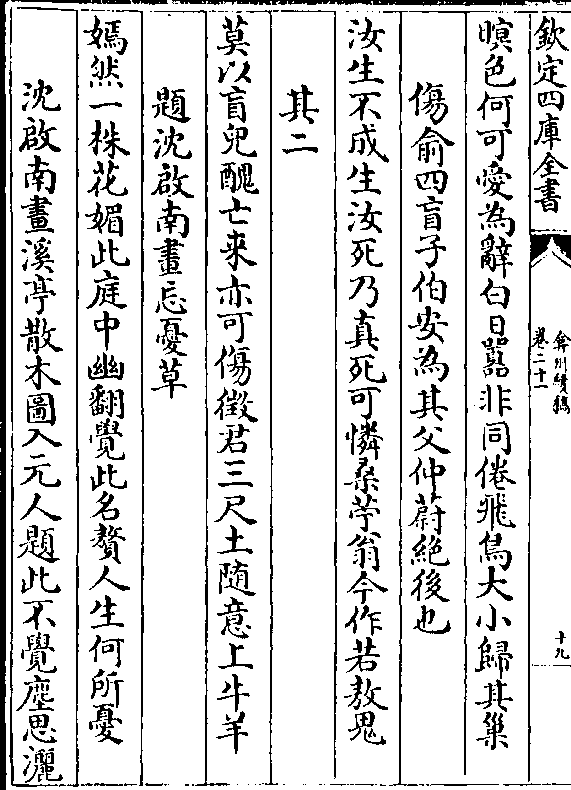 欽定四庫全書
弇州續稿
卷二十一
十九
暝色何可愛為辭白日囂非同倦飛鳥大小歸其巢
傷俞四盲子伯安為其父仲蔚絶後也
汝生不成生汝死乃真死可憐桑苧翁今作若敖鬼
其二
莫以盲兒醜亡来亦可傷徴君三尺土随意上牛羊
題沈啟南畫忘憂草
嫣然一株花媚此庭中幽翻覺此名贅人生何所憂
沈啟南畫溪亭散木圖入元人題此不覺塵思灑